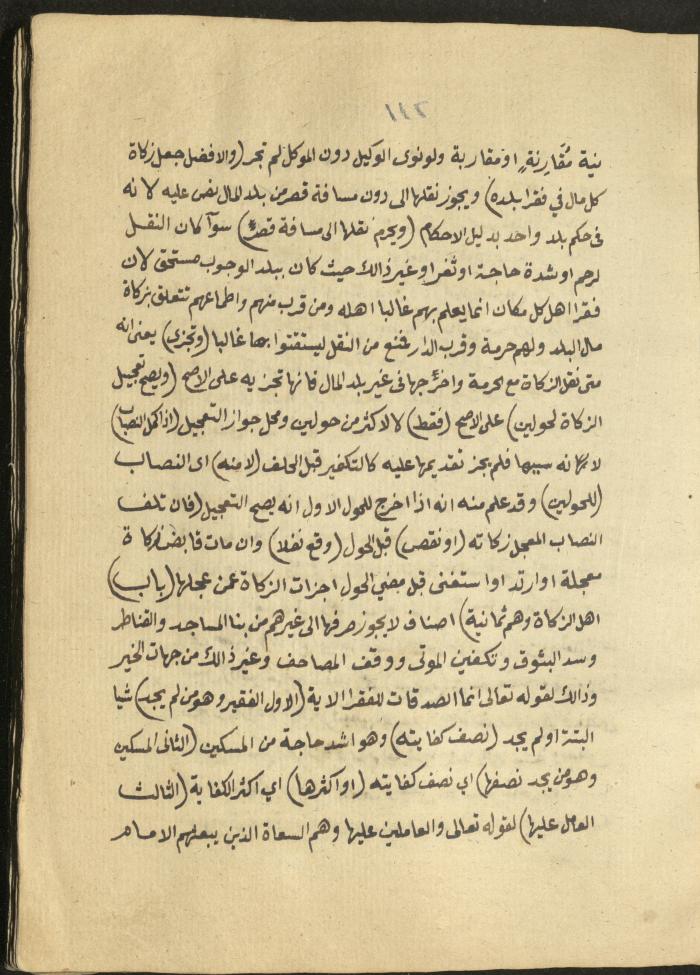 ١٤٢
نية مُقَارِنَةٍ او مقاربة ولو نوى الوكيل دون الموكل لم تجز (والافضل جعل زكاة
كل مال في فقرا بلده) ويجوز نقلها الى دون مسافة قصر من بلد المال نص عليه لانه
في حكم بلد واحد بدليل الاحكام (ويحرم نقلها الى مسافة قصر) سوآ كان النقل
لرحم او شدة حاجة او ثغر او غير ذالك حيث كان ببلد الوجوب مستحق لان
فقرا اهل كل مكان انما يعلم بهم غالبا اهله ومن قرب منهم واطماعهم تتعلق بزكاة
مال البلد ولهم حرمة وقرب الدار فمنع من النقل ليستغنوا بها غالبا (وتجزي) يعني انه
متى نقل الزكاة مع الحرمة واخرجها في غير بلد المال فانها تجزيه على الاصح (ويصح تعجيل
الزكاة لحولين) على الاصح (فقط) لا لاكثر من حولين ومحل جواز التعجيل (اذا كمل النصاب)
لانه سببها فلم يجز تقديمها عليه كالتكفير قبل الحلف (لا منه) اى النصاب
(للحولين) وقد علم منه انه اذا اخرج للحول الاول انه يصح التعجيل (فان تلف
النصاب المعجل زكاته (او نقص) قبل الحول (وقع نفلا) وان مات قابض زكاة
معجلة او ارتد او استغنى قبل مضي الحول اجزات الزكاة عمن عجلها (باب)
اهل الزكاة وهم ثمانية) اصناف لا يجوز صرفها الى غيرهم من بنا المساجد والقناطر
وسد البثوق وتكفين الموتى ووقف المصاحف وغير ذالك من جهات الخير
وذالك لقوله تعالى انما الصدقات للفقرا الاية (الاول الفقير وهو من لم يجد) شيا
البتة او لم يجد (نصف كفايته) وهو اشد حاجة من المسكين (الثانى المسكين
وهو من يجد نصفها) اي نصف كفايته (او اكثرها) اي اكثر الكفاية (الثالث
العامل عليها) لقوله تعالى والعاملين عليها وهم السعاة الذين يبعثهم الامام